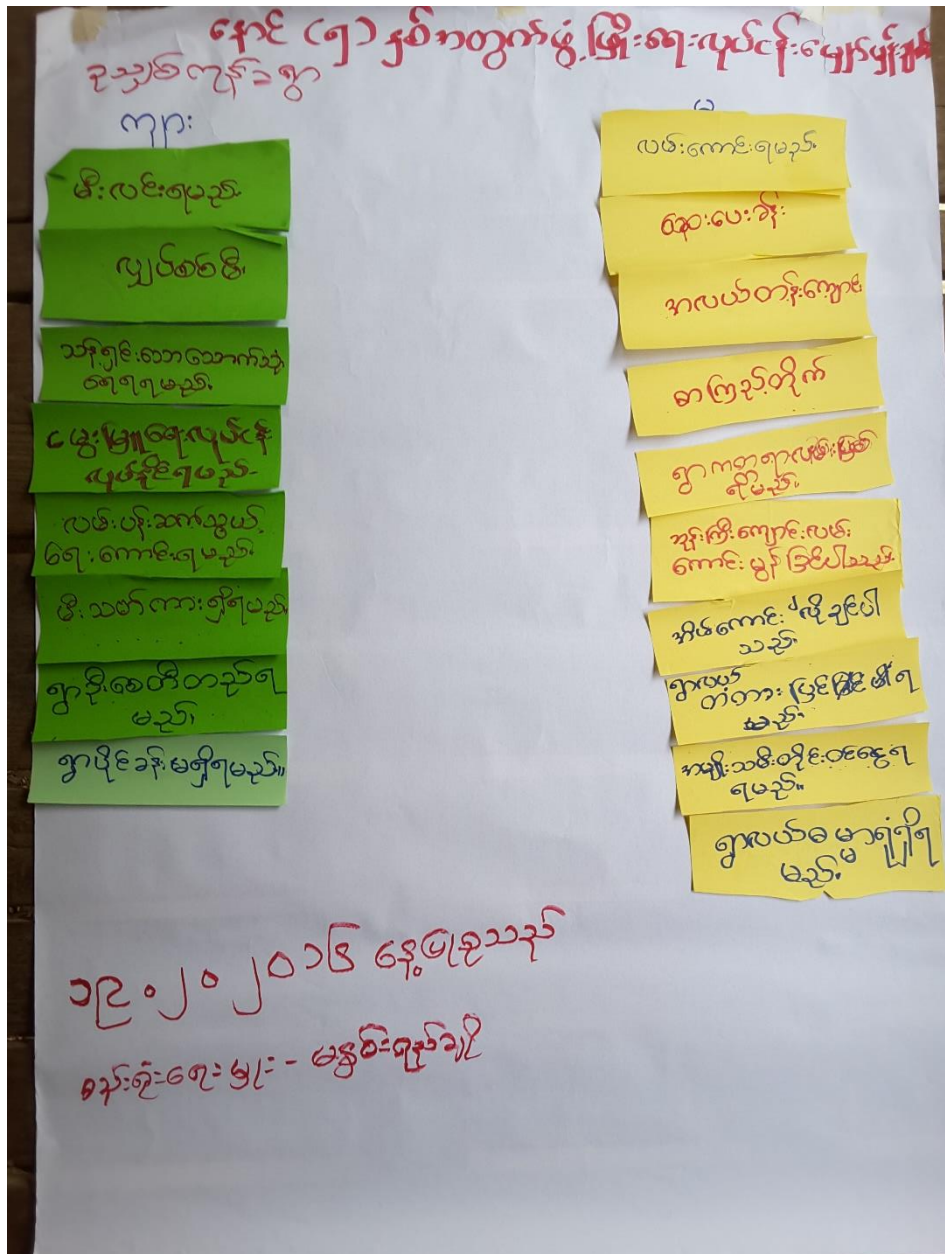 နောင် (၅) နှစ်အတွက်ဖွံ့ဖြိုးရေးလုပ်ငန်းမျှော်မှန်းချက်
ကုန်းရွာ
ကျား
မီးလင်းရမည်။
လျှပ်စစ်မီး
သန့်ရှင်းသောသောက်သုံး
ရေရရမည်။
ငမွေးမြူရေးလုပ်ငန်း
လုပ်နိုင်ရမည်။
လမ်းပန်းဆက်သွယ်
ရေးကောင်းရမည်။
မီးသတ်ကားရှိရမည်
ရွာဦးစေတီတည်ရ
မည်။
ရွာပိုင်ခန်းမရှိရမည်။
မ
လမ်းကောင်းရမည်
ဆေးပေးခန်း
အလယ်တန်းကျောင်း
စာကြည့်တိုက်
ရွာကတ္တရာလမ်းဖြစ်
ရမည်။
ဘုန်းကြီးကျောင်းလမ်း
ကောင်းမွန်ခြင်ပါသည်။
အိမ်ကောင်းလိုချင်ပါ
သည်။
ရွာလယ်
တံတားပြင်ခြင်
မည်။
အမျိုးသမီးတိုင်းဝင်ငွေရ
ရမည်။
ရွာလယ်ဓမ္မာရုံရှိရ
မည်။
၁၉.၂၀၂၀၁၆ နေ့ပြုစုသည်
စည်းရုံးရေးမှုး - မနှင်းရည်ချို